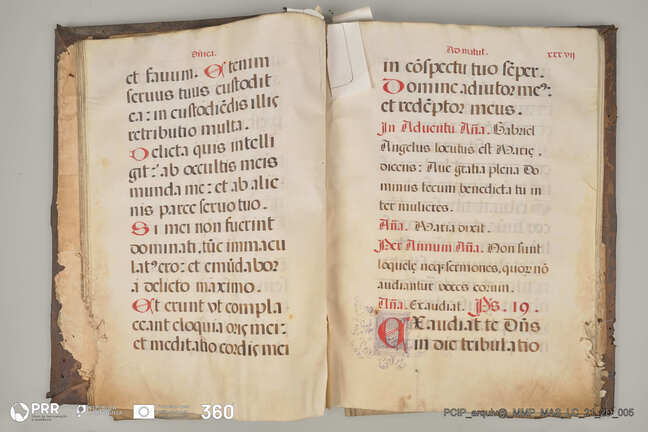 Dñica.
et fauum. Et enim
seruus tuus custodit
ea: in custodiēdis illis
retributio multa.
Delicta quis intelli
git: ab occultis meis
munda me: et ab alie
nis parce seruo tuo.
Si mei non fuerint
dominati, tūc immacu
lat⁹ ero: et emūdabor
a delicto maximo.
Et erunt vt compla
ceant eloquia oris mei:
et meditatio cordis mei
Ad matut. xxxvii
in cōspectu tuo sēper.
Domine adiutor me⁹:
et redēptor meus.
In Aduentu Aña. Gabriel
Angelus locutus est Marię,
dicens: Aue gratia plena Do
minus tecum benedicta tu in
ter mulieres.
Aña. Maria dixit.
Per Annum Aña. Non sunt
loquelę neq; sermones, quor nō
audiantur voces eorum.
Aña. Exaudiat. Ps. 19.
Exaudiat te Dñs
in die tribulatio
PRR
360
PCIP_arquivo@_MMP_MAS_LC_21_2D_005